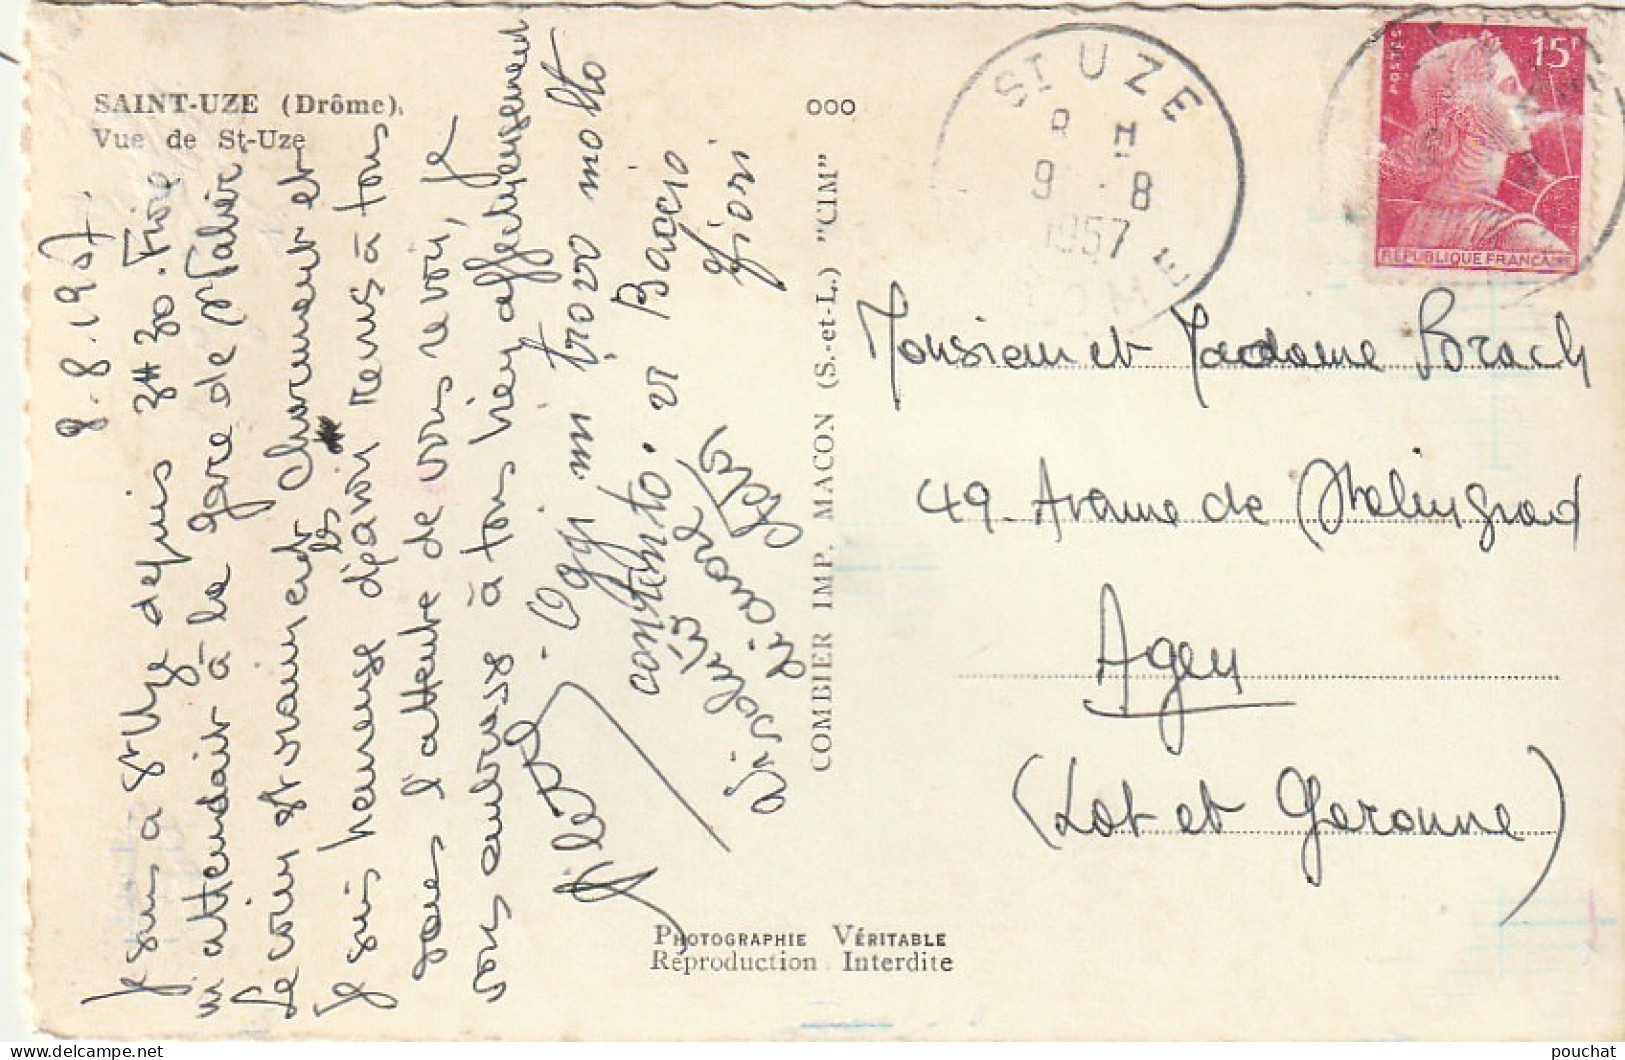 SAINT-UZE (Drôme).
Vue de St-Uze
8.8.1957.
Je suis à St Uze depuis 3H 30.
m'attendait à la Gare de St Valier
Le coin est vraiment charmant et
Je suis heureuse d'avoir
les
tous
l'attente de vous revoir, je
vous embrasse à tous bien affectueusement
- Oggi mi trovo molto
contento. vi Baccio
Giori
COMBIER IMP. MACON (S.-et-L.) "CIM"
ooo
ST UZE
9 - 8
1957
POSTES
15F
REPUBLIQUE FRANCAISE
Monsieur et Madame Brach
49 Avenue de Stalingrad
Agen
(Lot et Garonne)
PHOTOGRAPHIE VÉRITABLE
Reproduction Interdite
pouchat